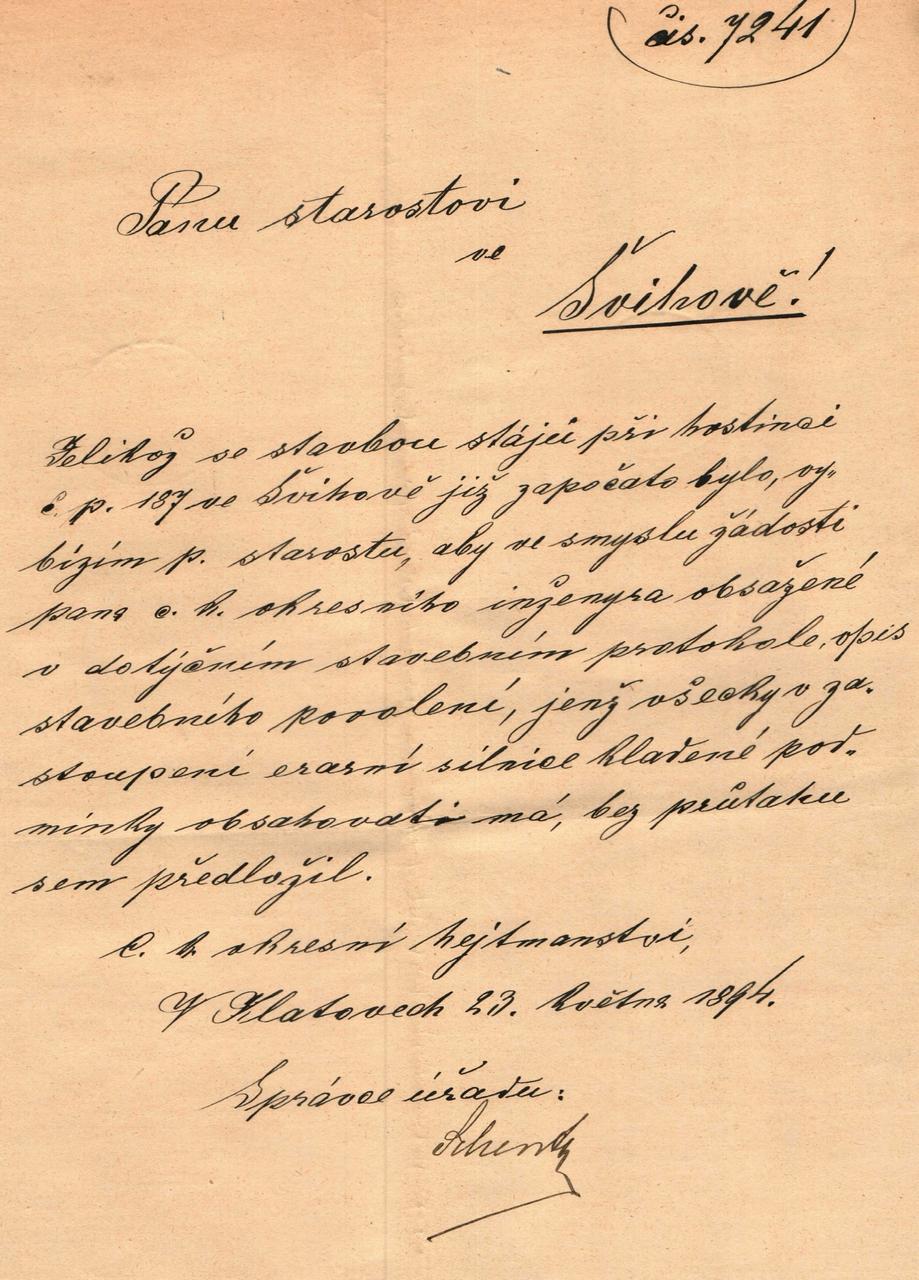 čis. 7241
Panu starostovi
ve
Švihově!
Jelikož se stavbou stájů při hostinci
č. p. 187 ve Švihově již započato bylo, vy-
bízím p. starostu, aby ve smyslu žádosti
pana c. k. okresního inženyra obsažené
v dotýčním stavebním protokole, opis
stavebního povolení, jenž všecky v za-
stoupení erární silnice kladené pod-
mínky obsahovati má, bez průtahu
sem předložil.
C. k. okresní hejtmanství,
V Klatovech 23. května 1894.
Správce úřadu: